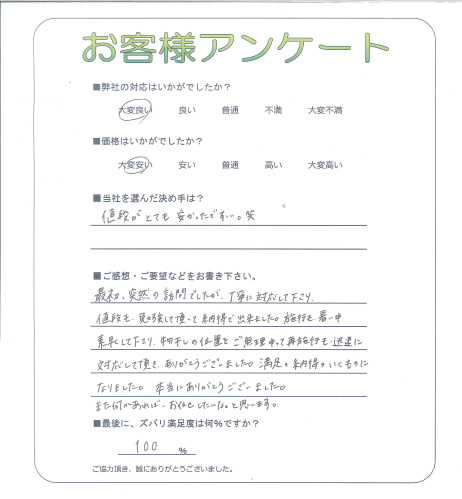 お客様アンケート
■弊社の対応はいかがでしたか？
大変良い 良い 普通 不満 大変不満
■価格はいかがでしたか？
大変安い 安い 普通 高い 大変高い
■当社を選んだ決め手は？
値段がとても安かったですぃ。笑
■ご感想・ご要望などをお書き下さい。
最初、突然の訪問でしたが、丁寧に対応して下り、
値段も、勉強して頂って納得で出来ました。施行も、暑い中
素早くして下り、物干しの位置をご無理申って再施行も迅速に
対応して頂き、ありがとうございました。満足。納得。いくものに
なりました。本当にありがとうございました。
また何かあれば、お任せしたいな。と思います。
■最後に、ズバリ満足度は何％ですか？
100 ％
ご協力頂き、誠にありがとうございました。